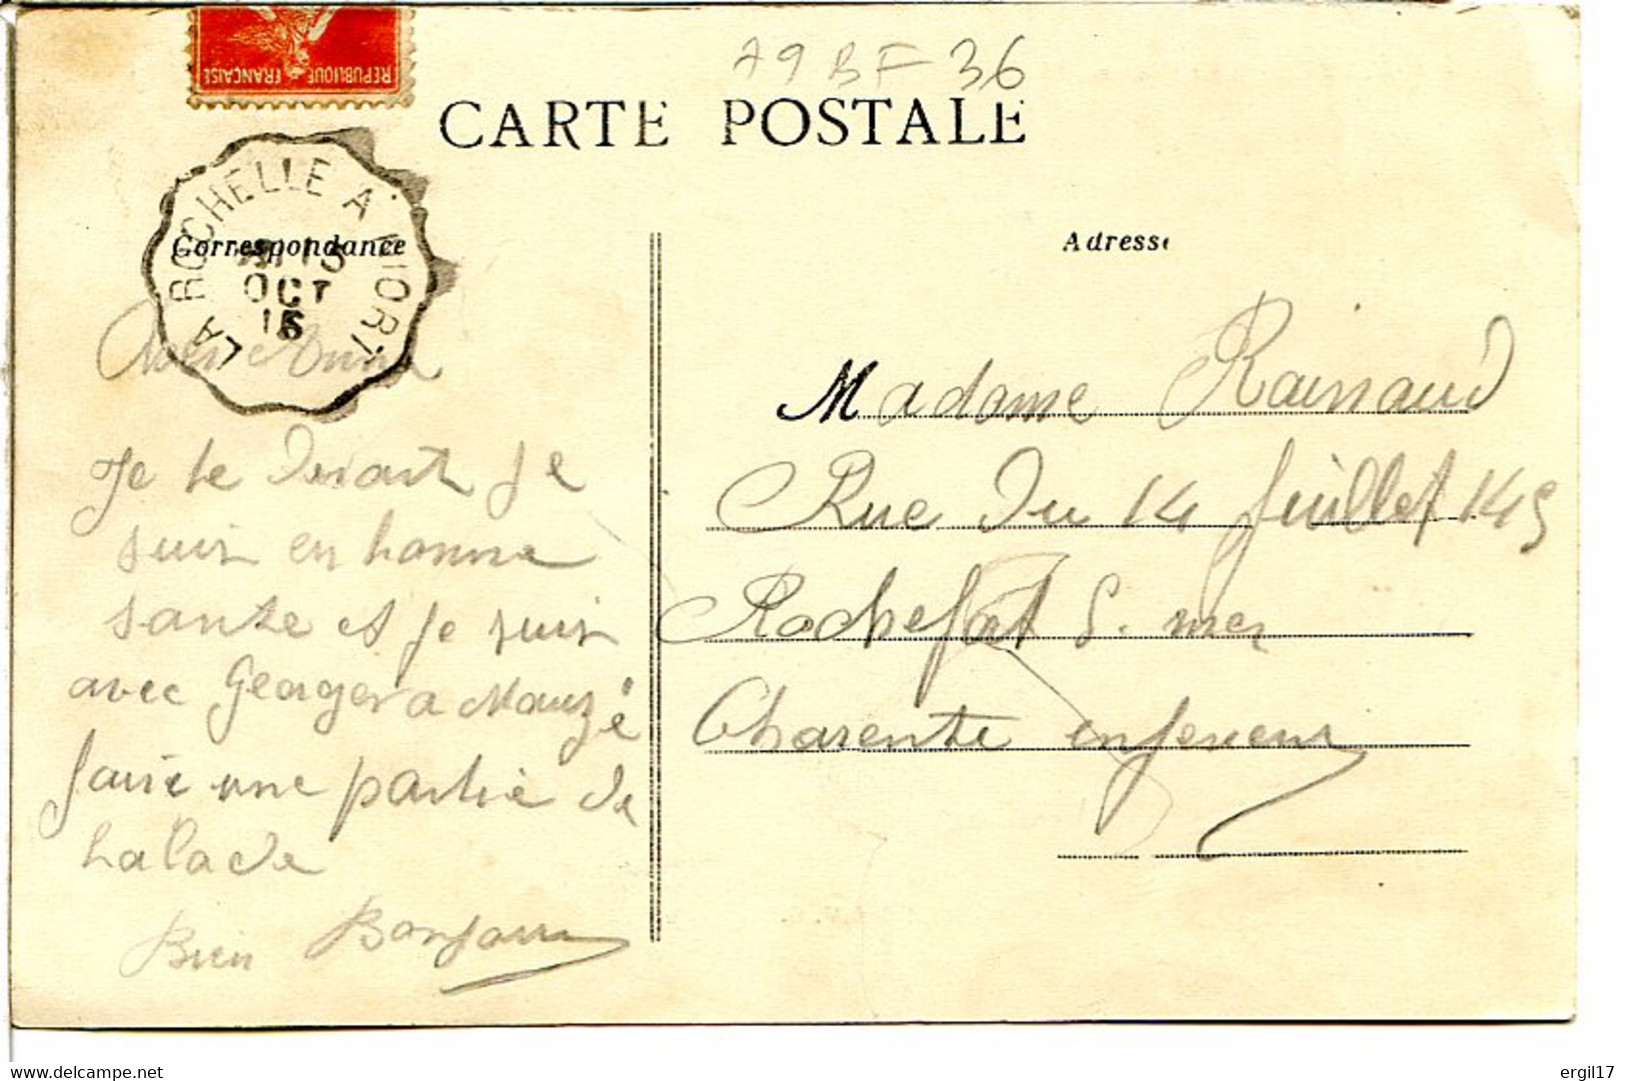 REPUBLIQUE FRANÇAISE
79 BF 36
CARTE POSTALE
LA ROCHELLE A NIORT
OCT
Correspondance
Adresse
Anna
Je te je
suis en bonne
sante et je suis
avec Georges a Mauzé
faire une partie de
balade
Bien Bonjour
Madame Rainaud
Rue Du 14 Juillet 145
Rochefort S. mer
Charente inferieur
www.delcampe.net
ergil17